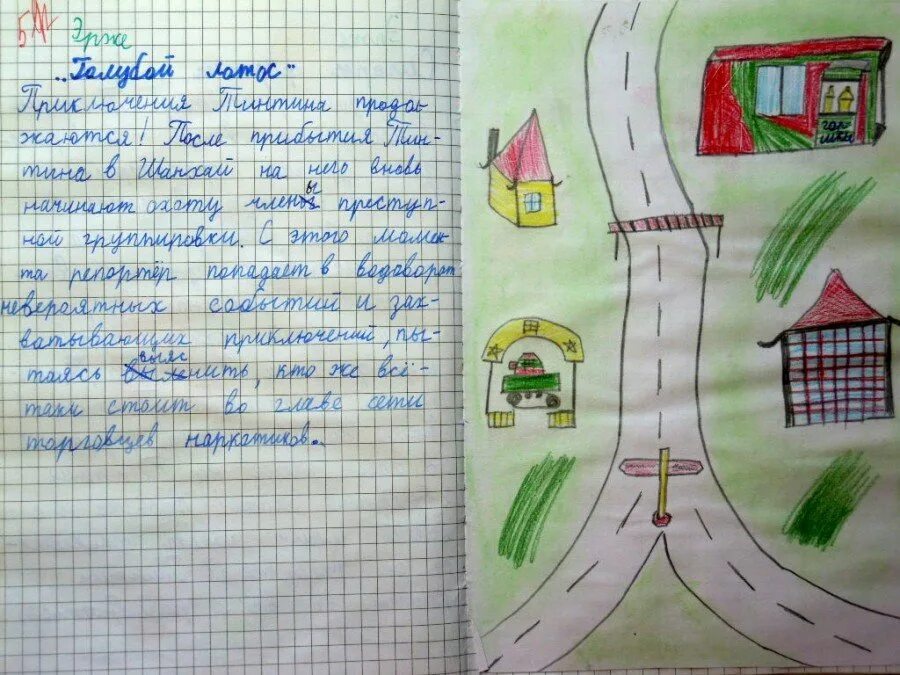 5
Эрже
„Голубой лотос"
Приключения Тинтина продол
жаются! После прибытия Тин-
тина в Шанхай на него вновь
начинают охоту члены преступ-
ной группировки. С этого момен-
та репортёр попадает в водоворот
невероятных событий и зах-
ватывающих приключений, пы-
таясь выяснить, кто же всё-
таки стоит во главе сети
торговцев наркотиков..
гор-
шки